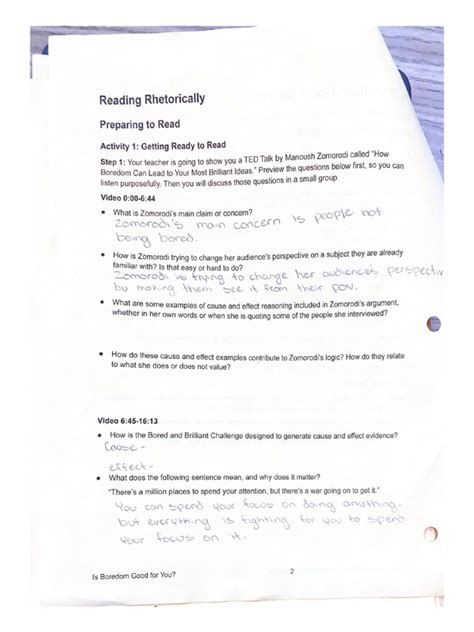 Reading Rhetorically
Preparing to Read
Activity 1: Getting Ready to Read
Step 1: Your teacher is going to show you a TED Talk by Manoush Zomorodi called "How
Boredom Can Lead to Your Most Brilliant Ideas." Preview the questions below first, so you can
listen purposefully. Then you will discuss those questions in a small group.
Video 0:00-6:44
• What is Zomorodi's main claim or concern?
Zomorodi's main concern is people not
being bored.
• How is Zomorodi trying to change her audience's perspective on a subject they are already
familiar with? Is that easy or hard to do?
Zomorodi is trying to change her audiences perspectiv
by making them see it from their pov.
• What are some examples of cause and effect reasoning included in Zomorodi's argument,
whether in her own words or when she is quoting some of the people she interviewed?
• How do these cause and effect examples contribute to Zomorodi's logic? How do they relate
to what she does or does not value?
Video 6:45-16:13
• How is the Bored and Brilliant Challenge designed to generate cause and effect evidence?
Cause -
effect -
• What does the following sentence mean, and why does it matter?
"There's a million places to spend your attention, but there's a war going on to get it."
You can spend your focus on doing anything.
but everything is fighting for you to spend
your focus on it.
Is Boredom Good for You?
2